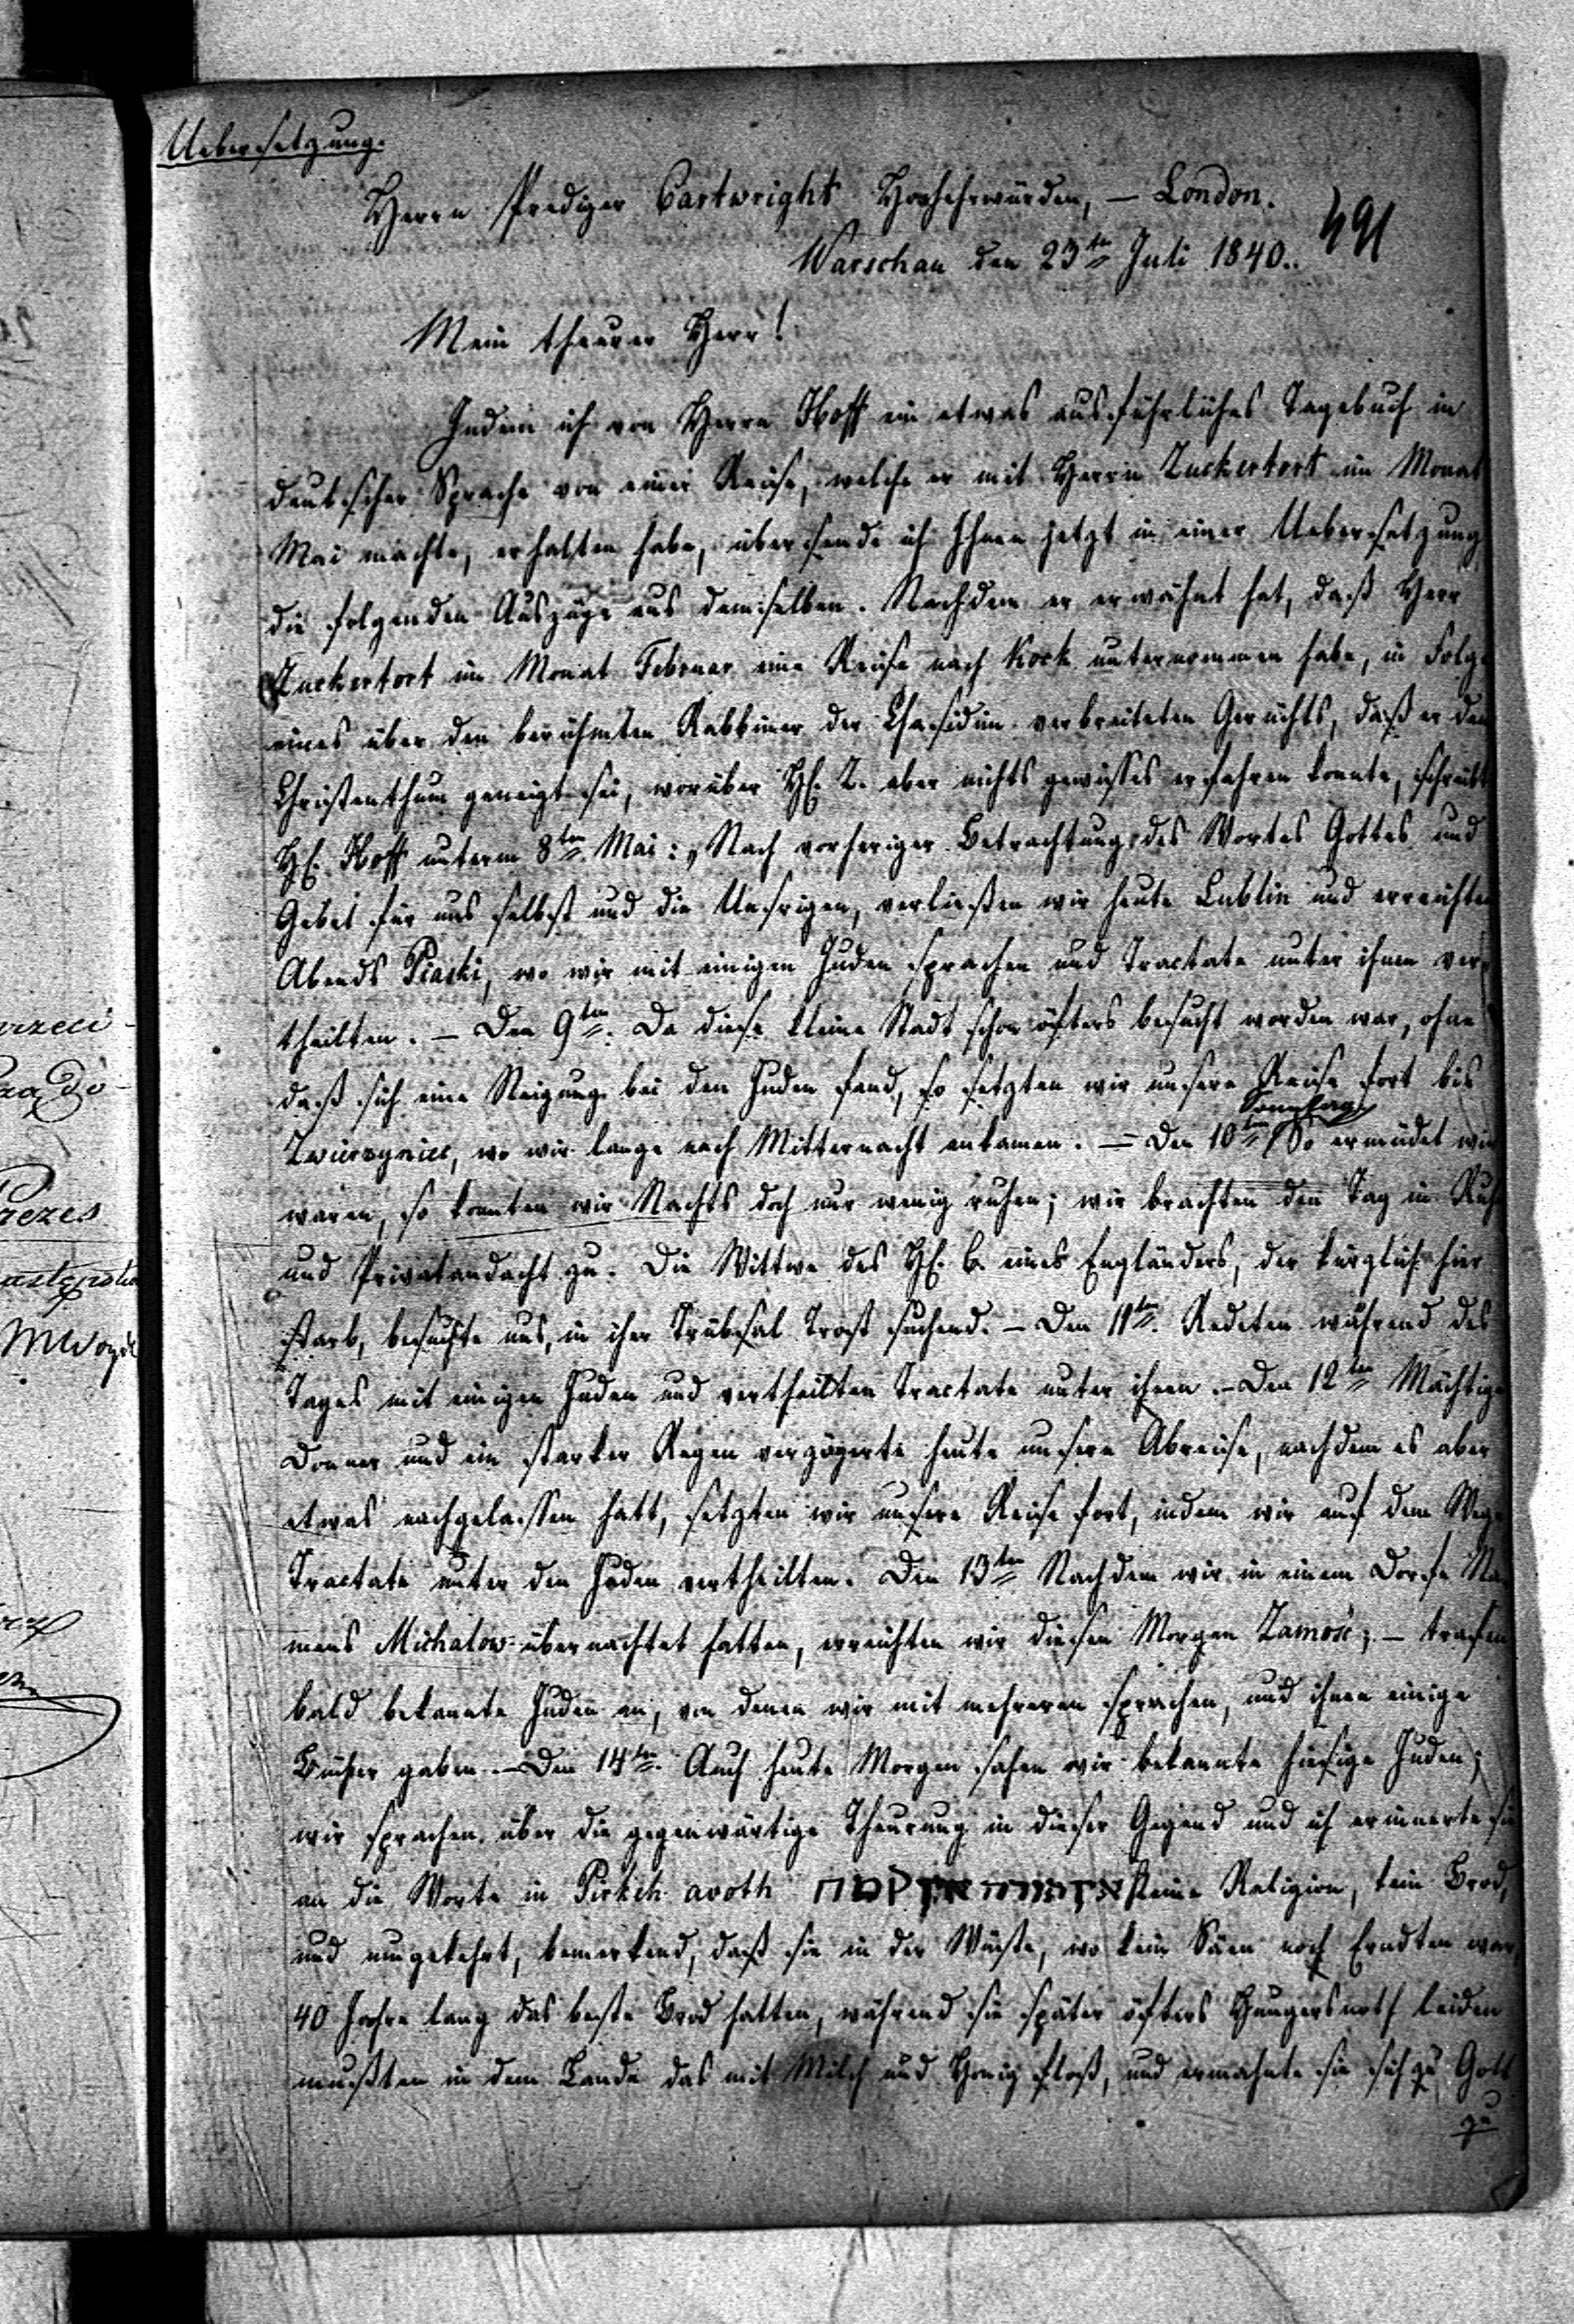 Uebersetzung.
Herrn Prediger Cartwright Hochehrwürden, — London.
491
Warschau den 23ten Juli 1840.
Mein theurer Herr!
Indem ich von Herrn Hoff ein etwas ausführliches Tagebuch in
deutscher Sprache von einer Reise, welche er mit Herrn Zuckertort im Monat
Mai machte, erhalten habe, übersende ich Ihnen jetzt in einer Uebersetzung
die folgenden Auszüge aus demselben. Nachdem er erwähnt hat, daß Herr
Zuckertort im Monat Februar eine Reise nach Kock unternommen habe, in Folge
eines über den berühmten Rabbiner der Chasidim verbreiteten Gerüchts, daß er dem
Christenthum geneigt sei, worüber H. Z. aber nichts gewisses erfahren konnte, schreibt
H. Hoff unterm 8ten Mai: „Nach vorheriger Betrachtung des Wortes Gottes und
Gebet für uns selbst und die Unsrigen, verließen wir heute Lublin und erreichten
Abends Piaski, wo wir mit einigen Juden sprachen und Tractate unter ihnen ver-
theilten. — Den 9ten. Da diese kleine Stadt schon öfters besucht worden war, ohne
daß sich eine Neigung bei den Juden fand, so setzten wir unsere Reise fort bis
Zwierzyniec, wo wir lange nach Mitternacht ankamen. — Den 10ten Sonntag. So ermüdet wir
waren, so konnten wir Nachts doch nur wenig ruhen; wir brachten den Tag in Ruhe
und Privatandacht zu. Die Wittwe des H. B. eines Engländers, der kürzlich hier
starb, besuchte uns, in ihrer Trübsal Trost suchend. — Den 11ten. Redeten während des
Tages mit einigen Juden und vertheilten Tractate unter ihnen. — Den 12ten Mächtiger
Donner und ein starker Regen verzögerte heute unsere Abreise, nachdem es aber
etwas nachgelassen hatt, setzten wir unsere Reise fort, indem wir auf dem Wege
Tractate unter den Juden vertheilten. Den 13ten Nachdem wir in einem Dorfe Na-
mens Michalow übernachtet hatten, erreichten wir diesen Morgen Zamość; — trafen
bald bekannte Juden an, von denen wir mit mehreren sprachen, und ihnen einige
Bücher gaben. — Den 14ten. Auch heute Morgen sahen wir bekannte hiesige Juden;
wir sprachen über die gegenwärtige Theurung in dieser Gegend und ich erinnerte sie
an die Worte in Pirkeh avoth אין תורה אין קמח keine Religion, kein Brod,
und umgekehrt, bemerkend, daß sie in der Wüste, wo kein Säen noch Erndten war,
40 Jahre lang das beste Brod hatten, während sie später öfters Hungersnoth leiden
mußten in dem Lande das mit Milch und Honig floß, und ermahnte sie sich zu Gott
zu